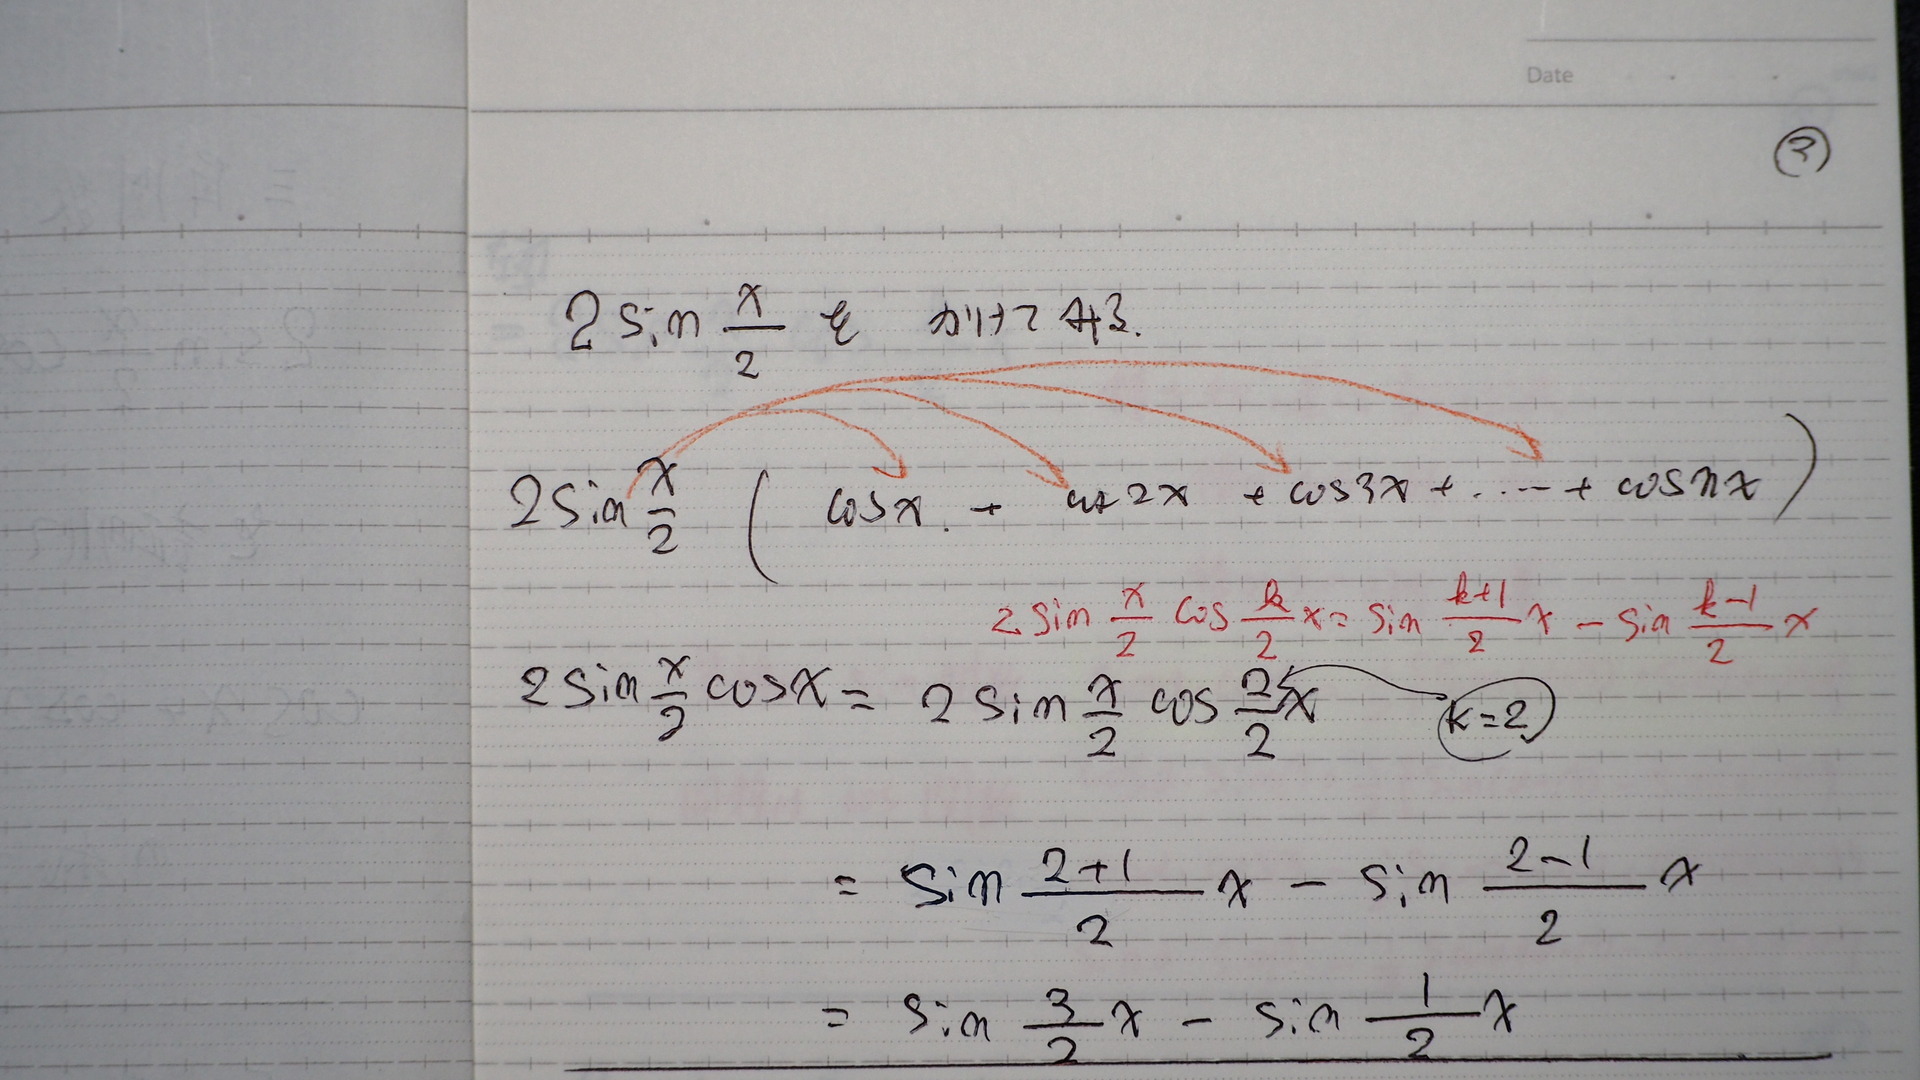 Date
③
2 sin x/2 を かけてみる.
2 sin x/2 ( cos x + cos 2x + cos 3x + ..... + cos nx )
2 sin x/2 cos k/2 x = sin (k+1)/2 x - sin (k-1)/2 x
2 sin x/2 cos x = 2 sin x/2 cos 2/2 x k=2
= sin (2+1)/2 x - sin (2-1)/2 x
= sin 3/2 x - sin 1/2 x